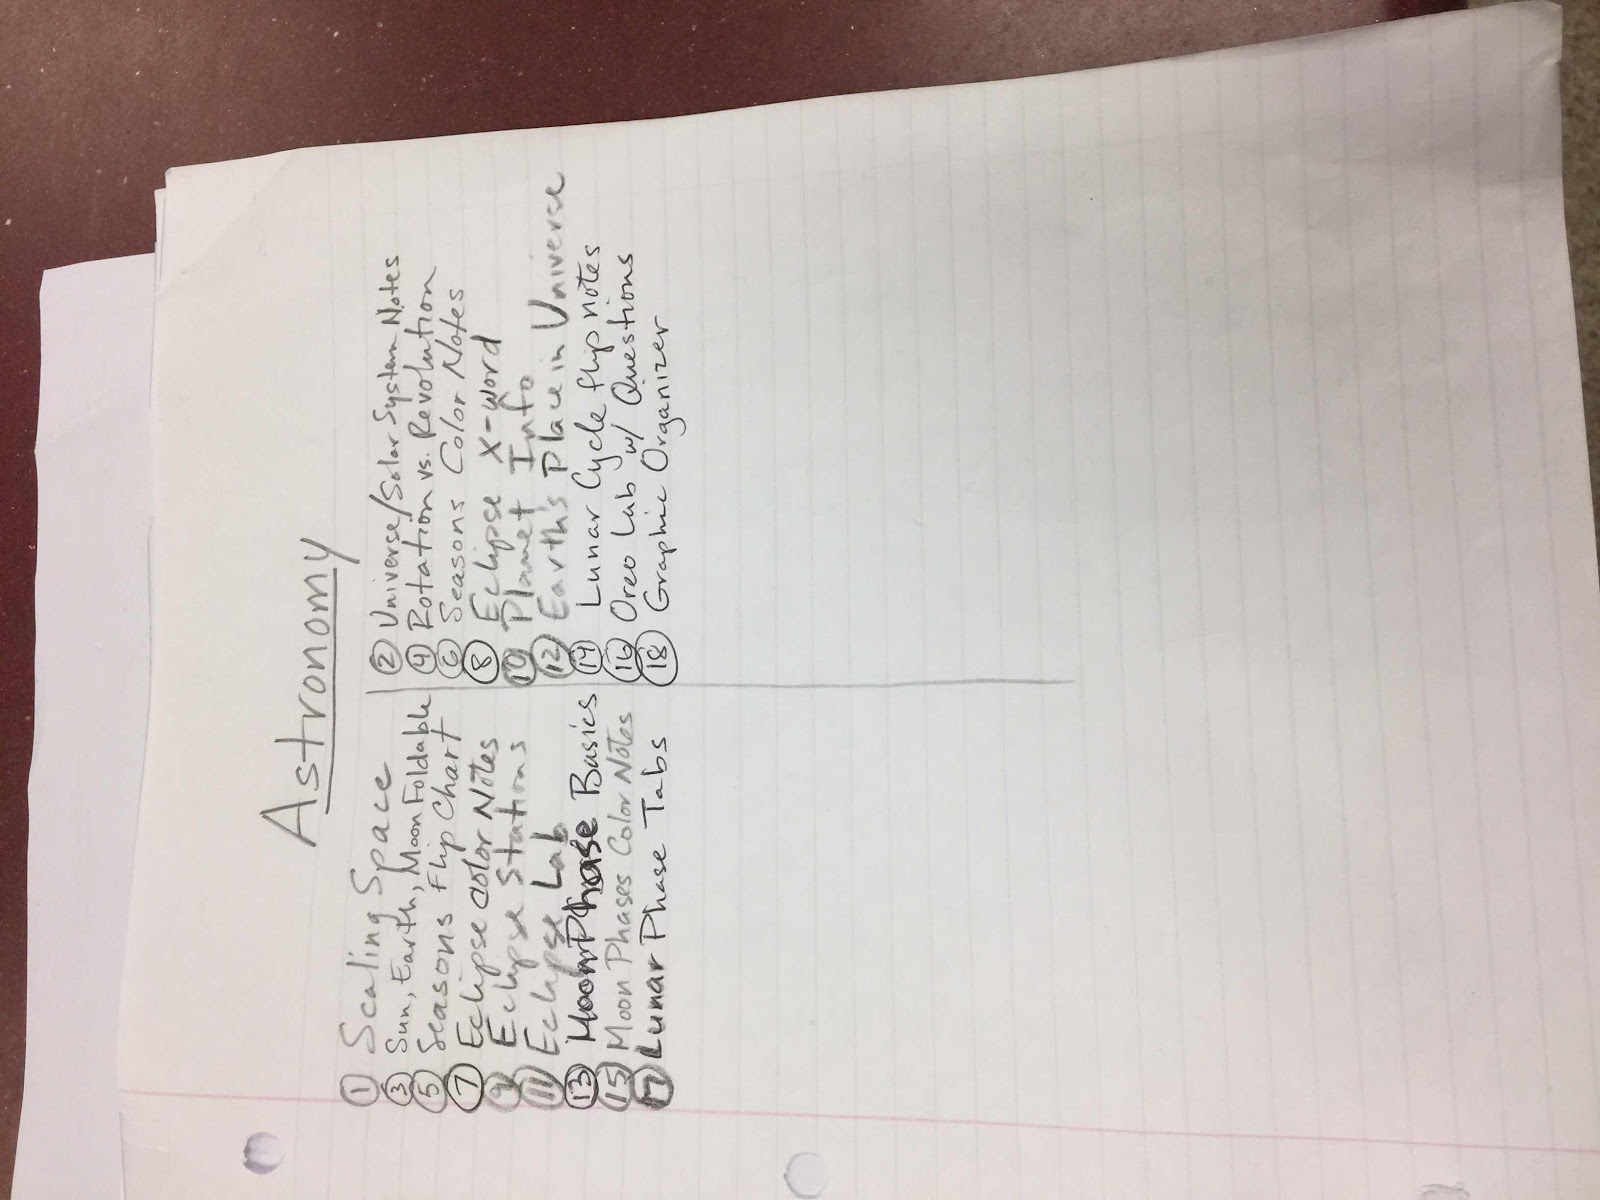 Astronomy
① Scaling Space
③ Sun, Earth, Moon Foldable
⑤ Seasons Flip Chart
⑦ Eclipse Color Notes
⑨ Eclipse Stations
⑪ Eclipse Lab
⑬ Moon Phase Basics
⑮ Moon Phases Color Notes
⑰ Lunar Phase Tabs
② Universe/Solar System Notes
④ Rotation vs. Revolution
⑥ Seasons Color Notes
⑧ Eclipse X-word
⑩ Planet Info
⑫ Earth's Place in Universe
⑭ Lunar Cycle flip notes
⑯ Oreo Lab w/ Questions
⑱ Graphic Organizer